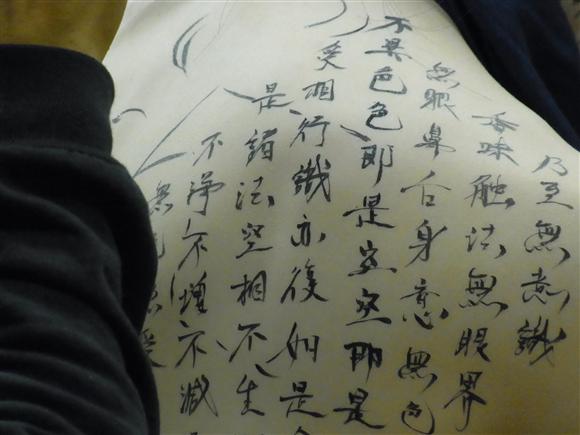 乃至無意識
香味触法無眼界
無眼鼻舌身意無色
不異色色即是空空即是
受相行識亦復如是
是諸法空相不生
不淨不增不減
無